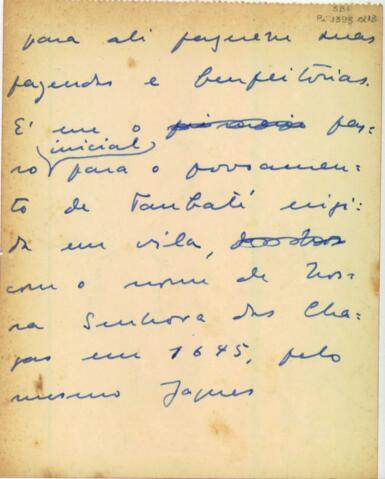 SBH
Pi 1393 p113
para ali fazerem suas
fazendas e benfeitorias.
É em o primeiro pas-
inicial
so para o povoamen-
to de Taubaté erigi-
da em vila,
com o nome de Nos-
sa Senhora das Cha-
gas em 1645, pelo
mesmo Jaques